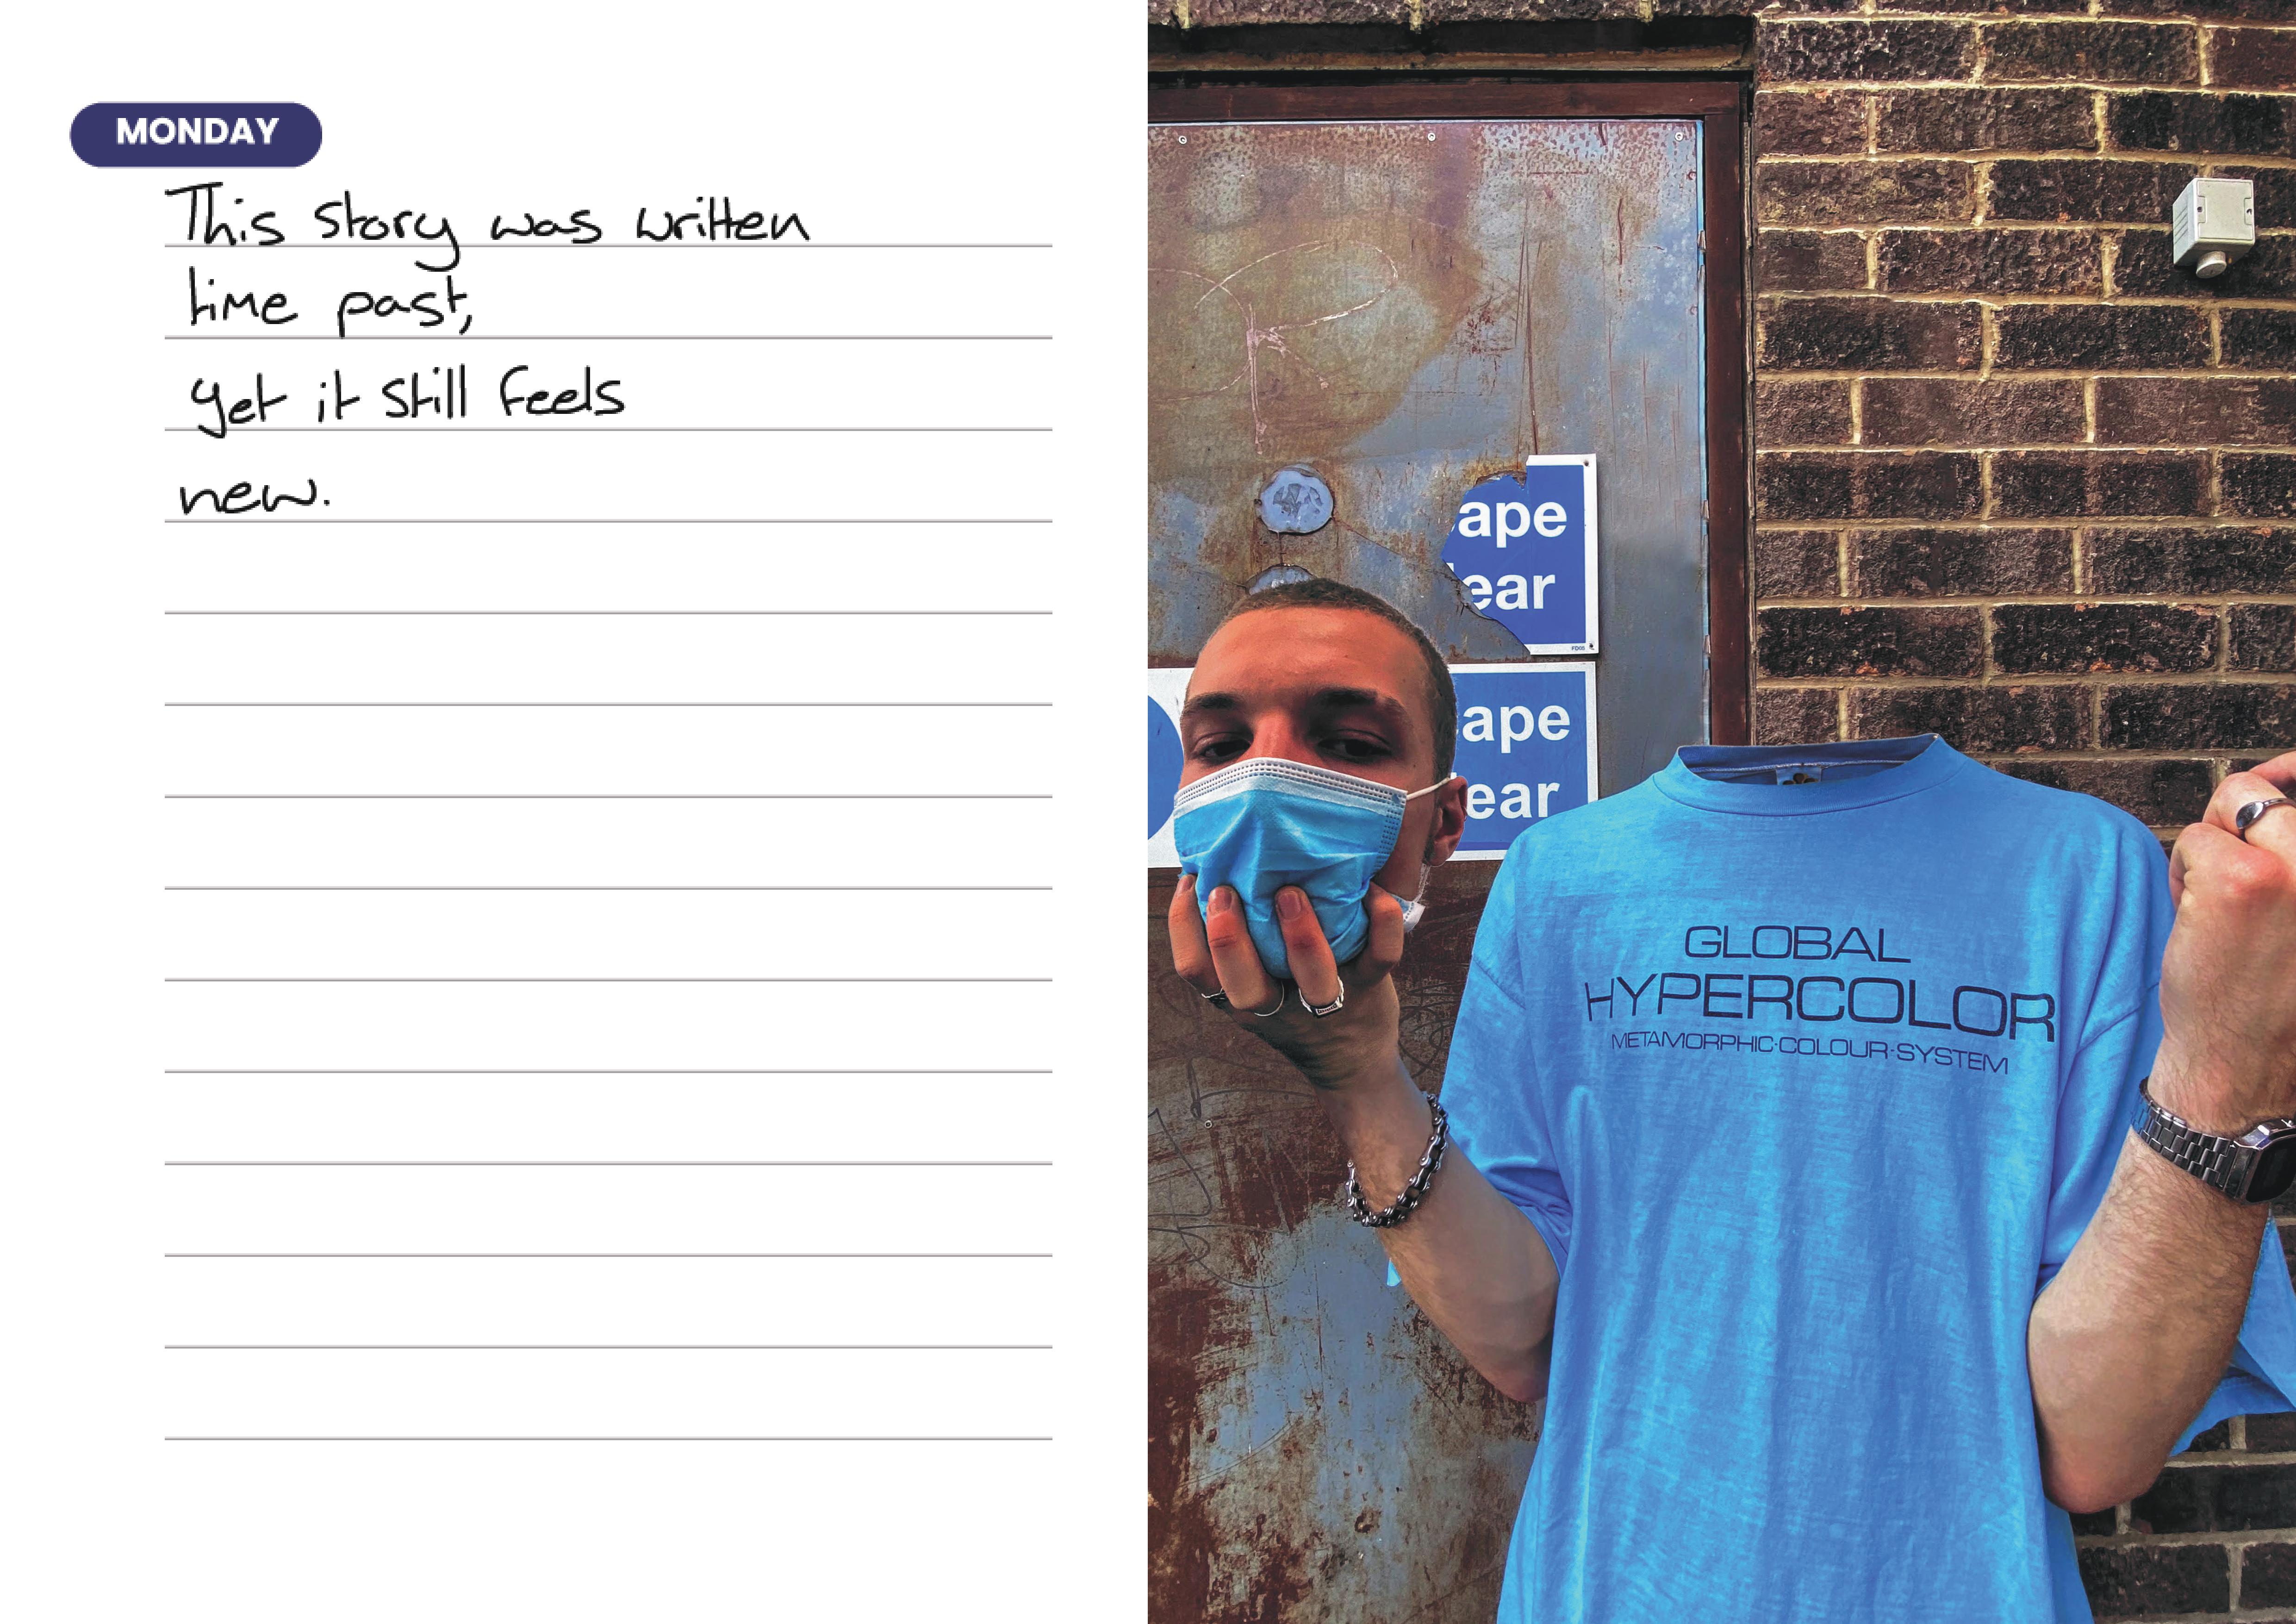 MONDAY
This story was written
time past,
yet it still feels
new.
ape
ear
ape
ear
GLOBAL
HYPERCOLOR
METAMORPHIC·COLOUR·SYSTEM